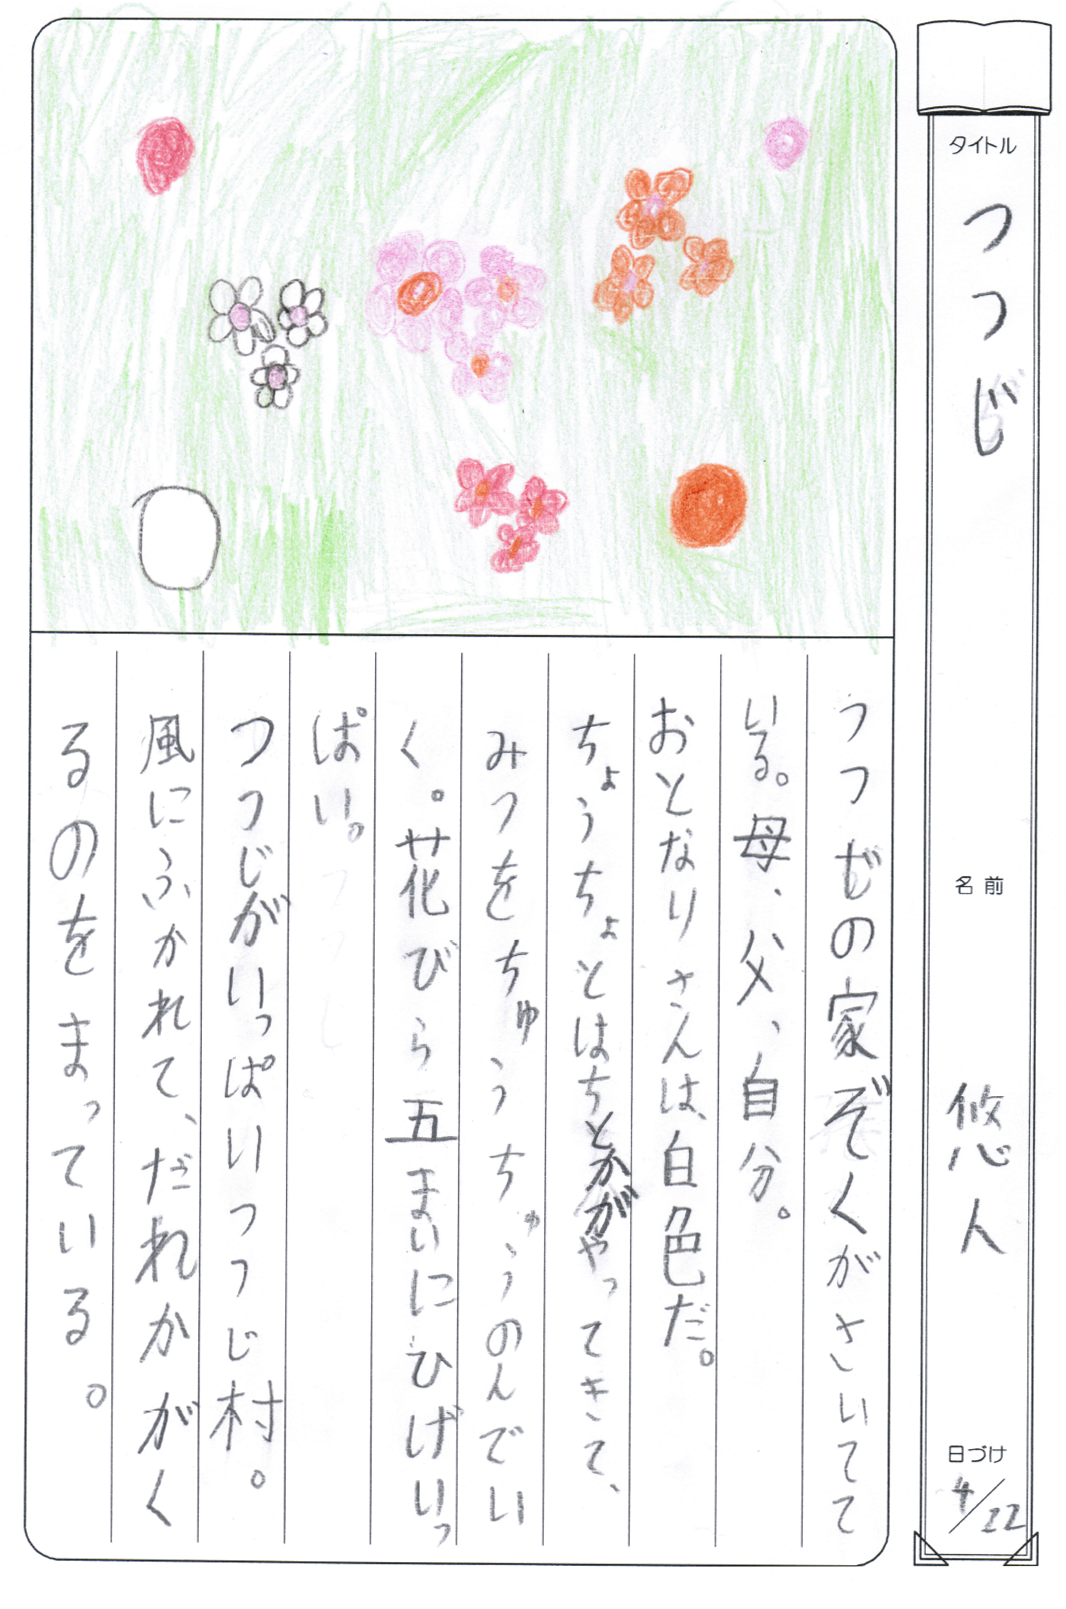 タイトル
つつじ
名前
悠人
日づけ
4/22
つつじの家ぞくがさいてて
いる。母、父、自分。
おとなりさんは、白色だ。
ちょうちょとはちとかがやってきて、
みつをちゅうちゅうのんでい
く。花びら五まいにひげいっ
ぱい。
つつじがいっぱいつつじ村。
風にふかれて、だれかがく
るのをまっている。